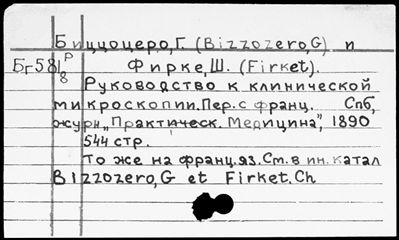 Биццоцеро,Г. (Bizzozero,G) и
Бг581 P/8 Фирке,Ш. (Firket).
Руководство к клинической
микроскопии. Пер. с франц. Спб,
журн „Практическ. Медицина”, 1890
544 стр.
То же на франц. яз. См. в ин. катал
Bizzozero,G et Firket.Ch